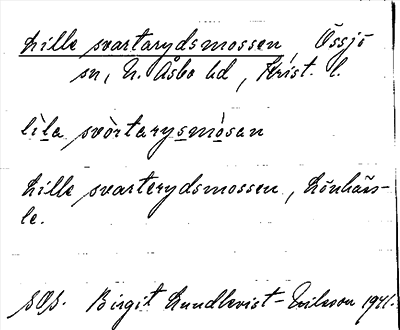 Lille svartarydsmossen, Össjö
sn, N. Åsbo hd, Krist. l.
lìla svòrtarysmòsan
Lille svarterydsmossen, Lönhäs-
le.
SOS. Birgit Lundkvist-Nilsson 1941.